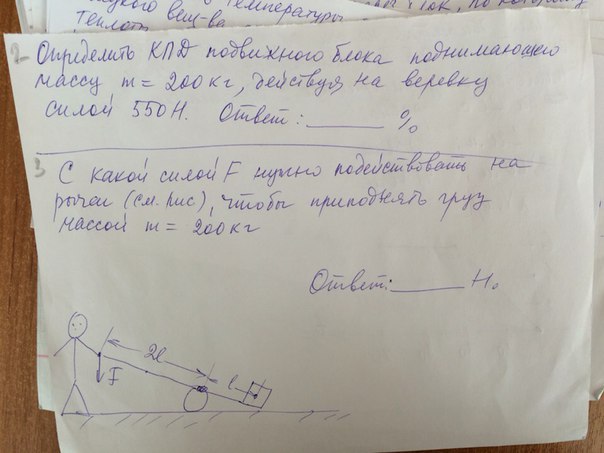 температуры
ток, по которому
теплот
2 Определить КПД подвижного блока поднимающего
массу m = 200 кг, действуя на веревку
силой 550 Н. Ответ: ______ %
3 С какой силой F нужно подействовать на
рычаг (см. рис), чтобы приподнять груз
массой m = 200 кг
Ответ: ______ Н.
2l
l
F